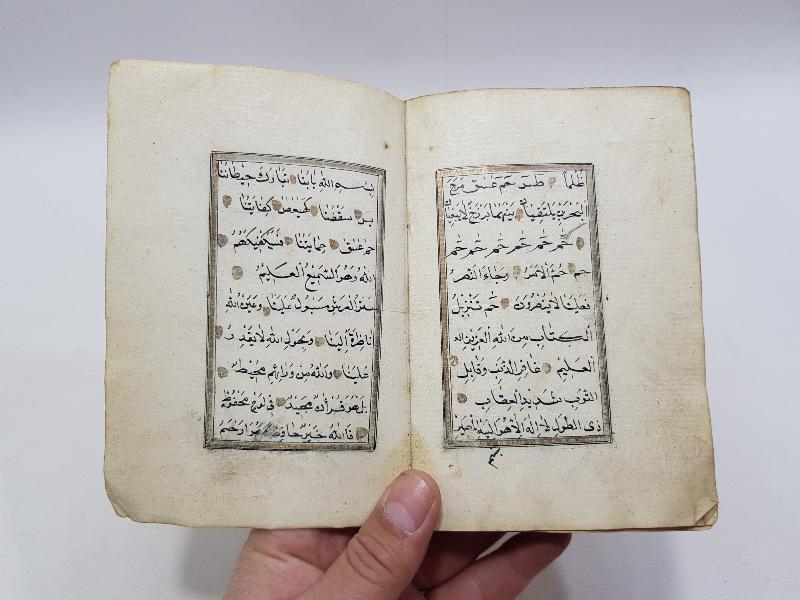 ظلماً طس حم عسق مرج
البحرين يلتقيان بينهما برزخ لا يبغيان
حم حم حم حم حم حم
حم حم الامر وجاء النصر
فعلينا لا ينصرون حم تنزيل
الكتاب من الله العزيز
العليم غافر الذنب وقابل
التوب شديد العقاب
ذى الطول لا اله الا هو اليه المصير
بسم الله بابنا تبارك حيطاننا
يس سقفنا كهيعص كفايتنا
حم عسق حمايتنا فسيكفيكهم
الله وهو السميع العليم
ستر العرش مسبول علينا وعين الله
ناظرة الينا وبحول الله لا يقدر
علينا والله من ورائهم محيط
بل هو قرآن مجيد في لوح محفوظ
فالله خير حافظا وهو ارحم